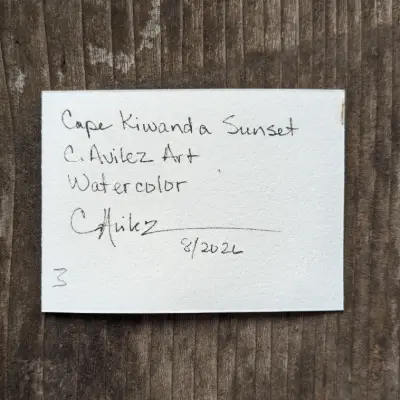 Cape Kiwanda Sunset
C. Avilez Art
Watercolor
CAvilez
3